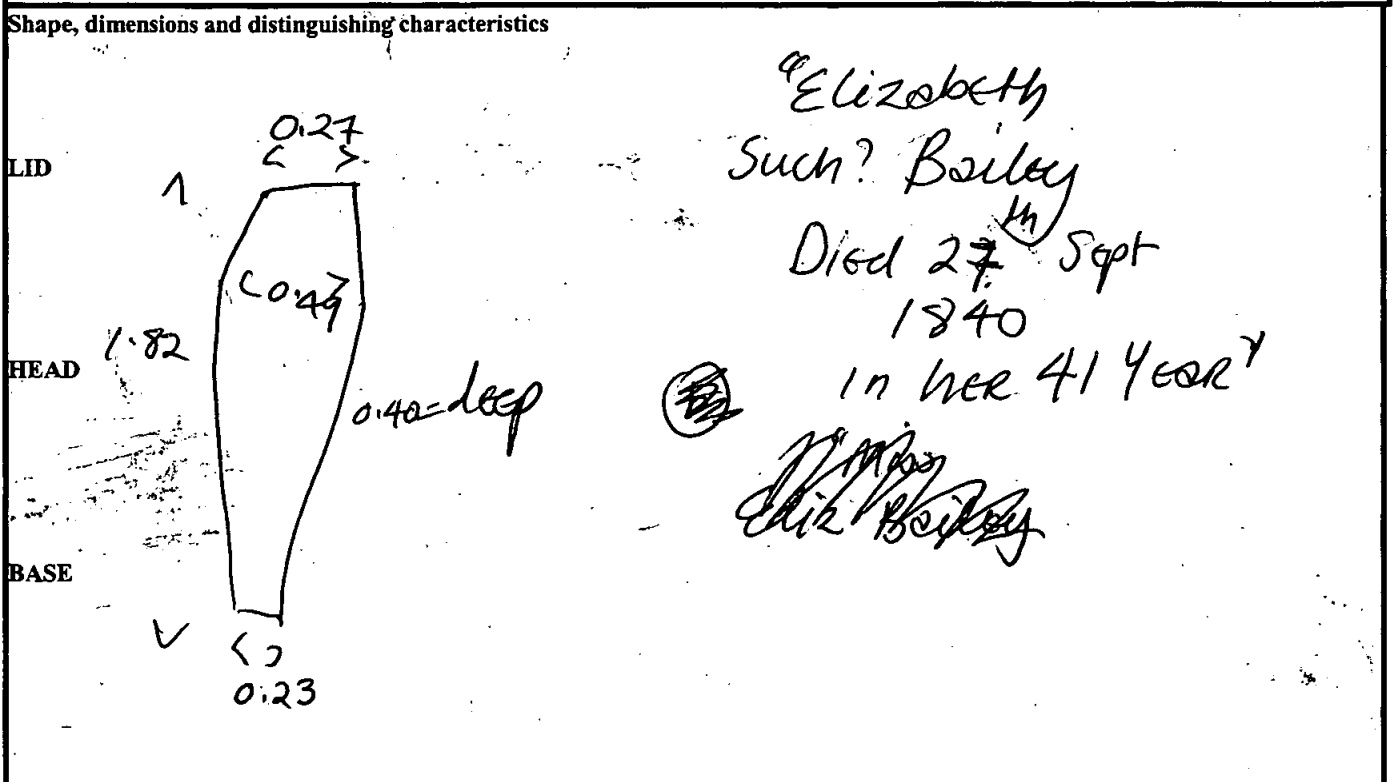 Shape, dimensions and distinguishing characteristics
0.27
< >
LID
<0.49>
1.82
HEAD
0.40=deep
BASE
< >
0.23
"Elizabeth
Such? Bailey
Died 27th Sept
1840
in her 41 Year"
Bailey